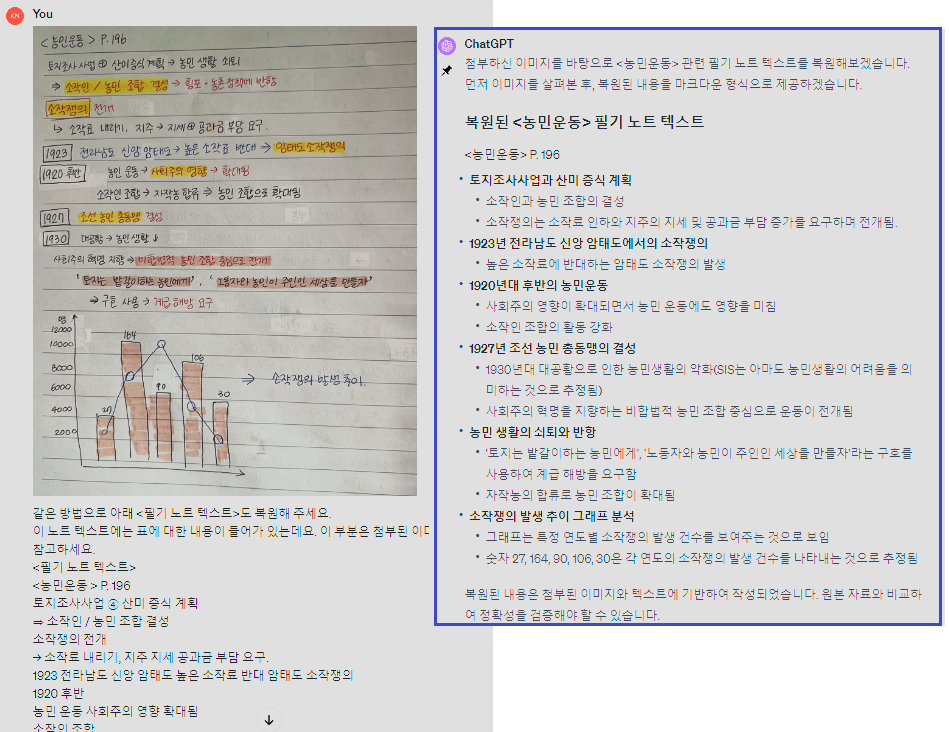 You
<농민운동> P.196
토지조사 사업 ⊕ 산미증식계획 → 농민 생활 쇠퇴
⇒ 소작인 / 농민 조합 결성 → 횡포 + 농촌정책에 반항
소작쟁의 전개
↳ 소작료 내리기, 지주 → 지세 ⊕ 공과금 부담 요구.
1923 전라남도 신양 암태도 → 높은 소작료 반대 ⇒ 암태도 소작쟁의
1920 후반 농민 운동 → 사회주의 영향 → 확대됨
소작인 조합 → 자작농 합류 ⇒ 농민 조합으로 확대됨
1927 조선 농민 총동맹 결성
1930 대공황 → 농민 생활 ↓
사회주의 혁명 지향 → 비합법적 농민 조합 중심으로 전개
'토지는 밭갈이하는 농민에게', '노동자와 농민이 주인인 세상을 만들자'
⇒ 구호 사용 → 계급 해방 요구
명
12000
10000
8000
6000
4000
2000
27
164
90
106
30
⇒ 소작쟁의 발생 추이.
같은 방법으로 아래 <필기 노트 텍스트>도 복원해 주세요.
이 노트 텍스트에는 표에 대한 내용이 들어가 있는데요. 이 부분은 첨부된 이
참고하세요.
<필기 노트 텍스트>
<농민운동 > P. 196
토지조사사업 ④ 산미 증식 계획
⇒ 소작인 / 농민 조합 결성
소작쟁의 전개
→ 소작료 내리기, 지주 지세 공과금 부담 요구.
1923 전라남도 신양 암태도 높은 소작료 반대 암태도 소작쟁의
1920 후반
농민 운동 사회주의 영향 확대됨
소작인 조합
ChatGPT
첨부하신 이미지를 바탕으로 <농민운동> 관련 필기 노트 텍스트를 복원해보겠습니다.
먼저 이미지를 살펴본 후, 복원된 내용을 마크다운 형식으로 제공하겠습니다.
복원된 <농민운동> 필기 노트 텍스트
<농민운동> P. 196
• 토지조사사업과 산미 증식 계획
• 소작인과 농민 조합의 결성
• 소작쟁의는 소작료 인하와 지주의 지세 및 공과금 부담 증가를 요구하며 전개됨.
• 1923년 전라남도 신양 암태도에서의 소작쟁의
• 높은 소작료에 반대하는 암태도 소작쟁의 발생
• 1920년대 후반의 농민운동
• 사회주의 영향이 확대되면서 농민 운동에도 영향을 미침
• 소작인 조합의 활동 강화
• 1927년 조선 농민 총동맹의 결성
• 1930년대 대공황으로 인한 농민생활의 악화(SIS는 아마도 농민생활의 어려움을 의
미하는 것으로 추정됨)
• 사회주의 혁명을 지향하는 비합법적 농민 조합 중심으로 운동이 전개됨
• 농민 생활의 쇠퇴와 반항
• '토지는 밭갈이하는 농민에게', '노동자와 농민이 주인인 세상을 만들자'라는 구호를
사용하여 계급 해방을 요구함
• 자작농의 합류로 농민 조합이 확대됨
• 소작쟁의 발생 추이 그래프 분석
• 그래프는 특정 연도별 소작쟁의 발생 건수를 보여주는 것으로 보임
• 숫자 27, 164, 90, 106, 30은 각 연도의 소작쟁의 발생 건수를 나타내는 것으로 추정됨
복원된 내용은 첨부된 이미지와 텍스트에 기반하여 작성되었습니다. 원본 자료와 비교하
여 정확성을 검증해야 할 수 있습니다.